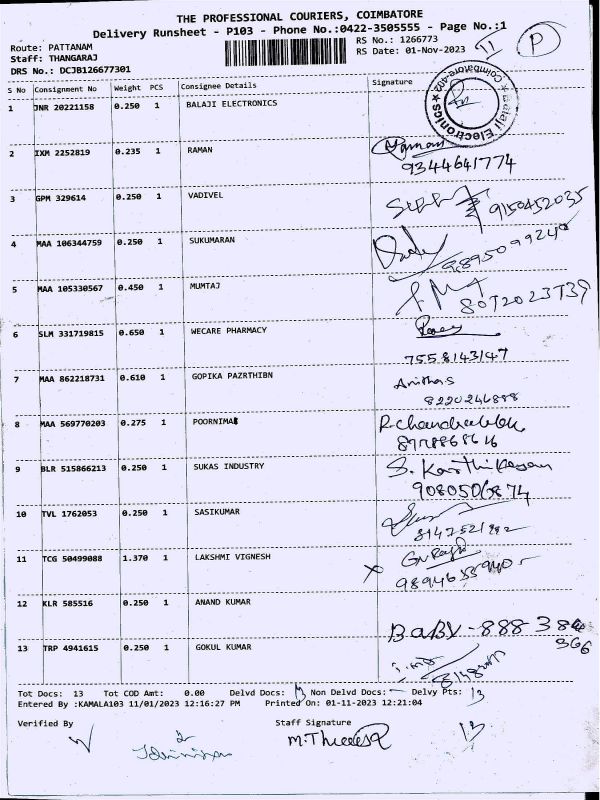 THE PROFESSIONAL COURIERS, COIMBATORE
Delivery Runsheet - P103 - Phone No.:0422-3505555 - Page No.:1
Route: PATTANAM RS No.: 1266773
Staff: THANGARAJ RS Date: 01-Nov-2023
DRS No.: DCJB126677301
P
S No Consignment No Weight PCS Consignee Details Signature
1 JNR 20221158 0.250 1 BALAJI ELECTRONICS
Balaji Electronics ★ Coimbatore-402 ★
2 IXM 2252819 0.235 1 RAMAN
9344641774
3 GPM 329614 0.250 1 VADIVEL
9150452035
4 MAA 106344759 0.250 1 SUKUMARAN
5 MAA 105330567 0.450 1 MUMTAJ
8072023739
6 SLM 331719815 0.650 1 WECARE PHARMACY
7558143147
7 MAA 862218731 0.610 1 GOPIKA PAZRTHIBN
Anitha.S
8220246888
8 MAA 569770203 0.275 1 POORNIMAS
9 BLR 515866213 0.250 1 SUKAS INDUSTRY
S. Karthikeyan
10 TVL 1762053 0.250 1 SASIKUMAR
11 TCG 50499088 1.370 1 LAKSHMI VIGNESH
12 KLR 585516 0.250 1 ANAND KUMAR
BABY - 888 384
366
13 TRP 4941615 0.250 1 GOKUL KUMAR
Tot Docs: 13 Tot COD Amt: 0.00 Delvd Docs: 13 Non Delvd Docs: — Delvy Pts: 13
Entered By :KAMALA103 11/01/2023 12:16:27 PM Printed On: 01-11-2023 12:21:04
Verified By Staff Signature
13